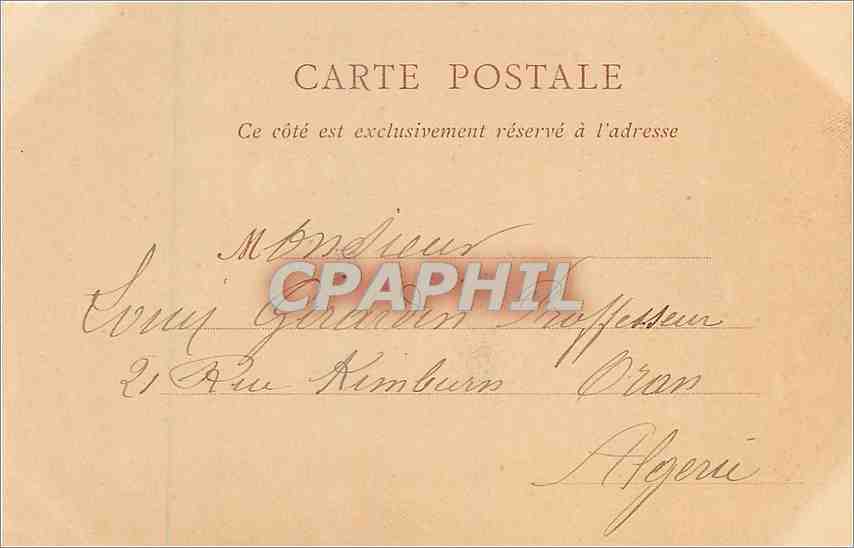 CARTE POSTALE
Ce côté est exclusivement réservé à l'adresse
Monsieur
CPAPHIL
Louis Girardin Proffesseur
21 Rue Kimburn Oran
Algerie